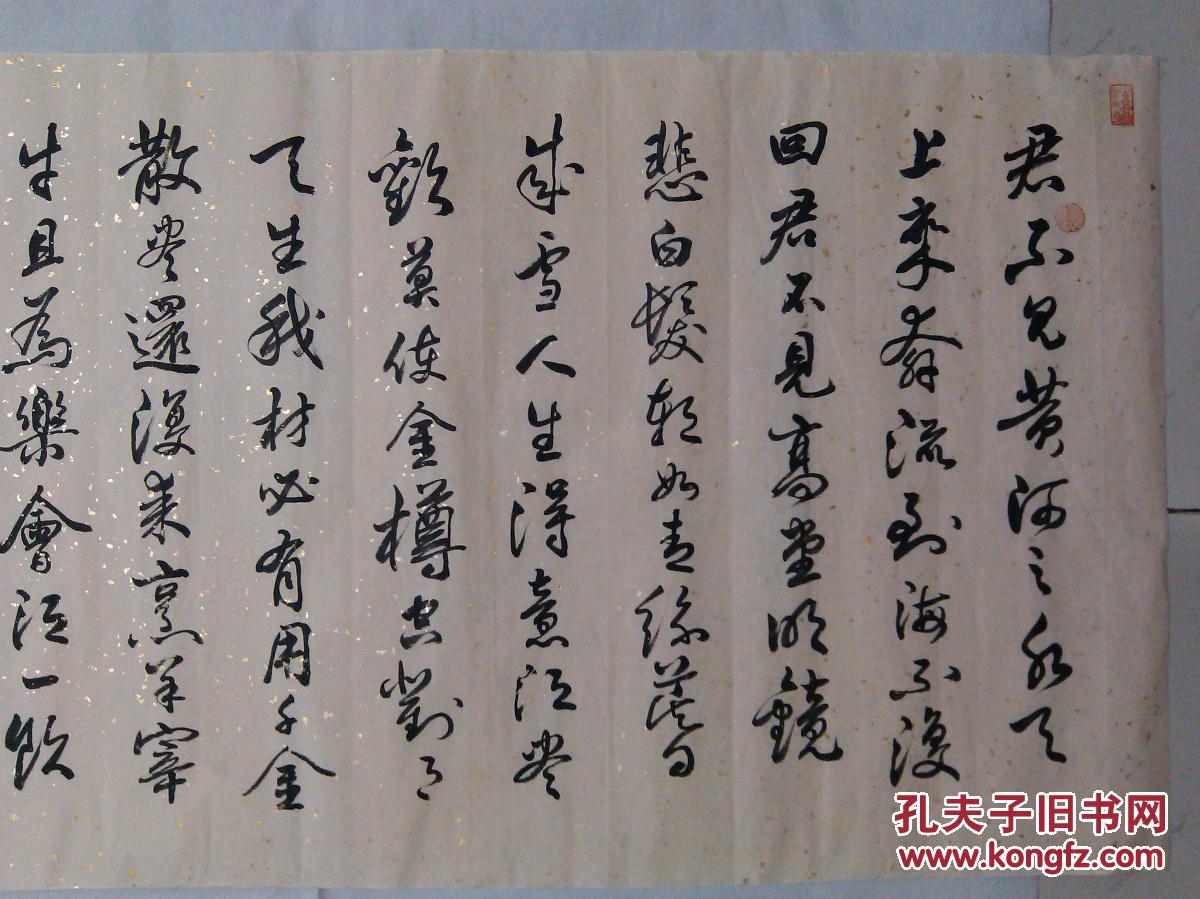 君不見黄河之水天
上來奔流到海不復
回君不見高堂明鏡
悲白髮朝如青絲暮
成雪人生得意須盡
歡莫使金樽空對月
天生我材必有用千金
散盡還復來烹羊宰
牛且為樂會須一飲
孔夫子旧书网
www.kongfz.com